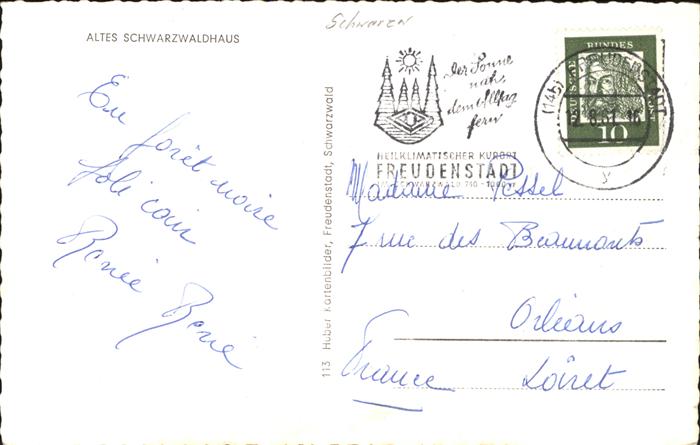 Schwarzw
ALTES SCHWARZWALDHAUS
En
forêt noire
Joli coin
Renée René
113 Huber Kartenbilder, Freudenstadt, Schwarzwald
Der Sonne
nah,
dem Alltag
fern
HEILKLIMATISCHER KURORT
FREUDENSTADT
SCHWARZWALD 740 - 1000
(14b) FREUDENSTADT
DEUTSCHE BUNDESPOST
10
Madame Pessel
7 rue des Beaumonts
Orléans
France Loiret